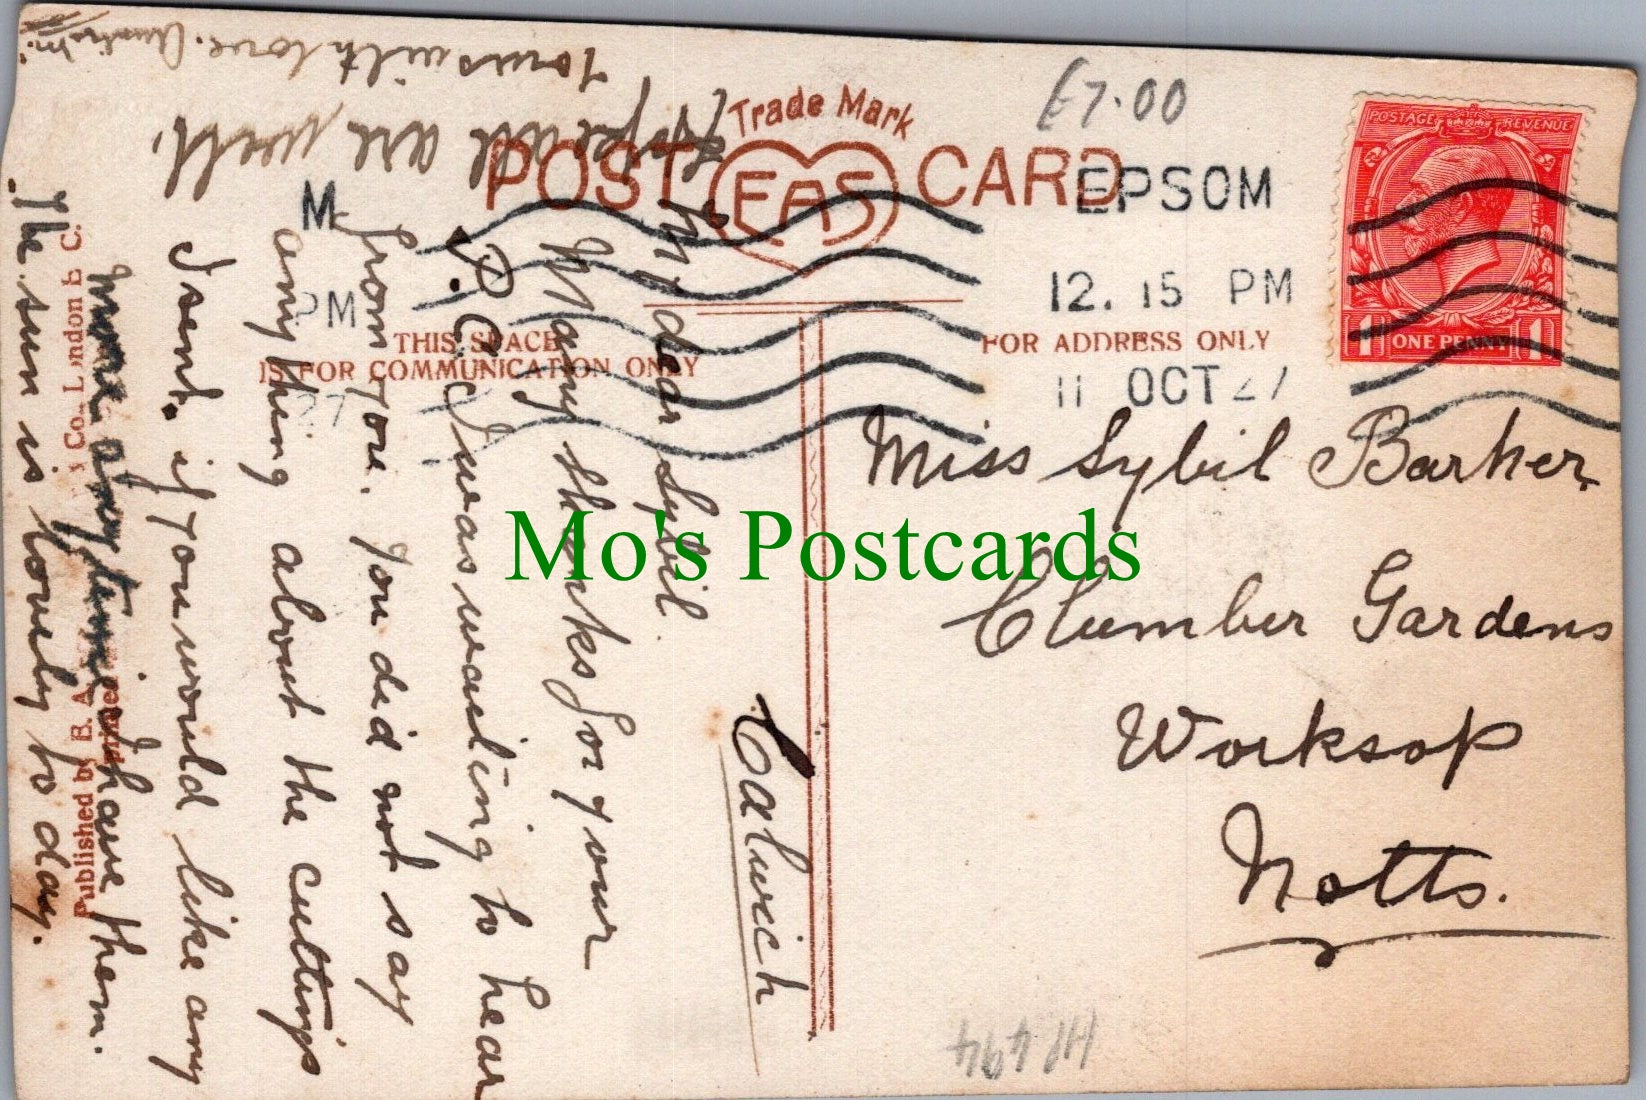 £7.00
Trade Mark
POST CARD
EAS
EPSOM
12. 15 PM
11 OCT 27
M
PM
27
POSTAGE REVENUE
1 ONE PENNY 1
THIS SPACE
IS FOR COMMUNICATION ONLY
FOR ADDRESS ONLY
Miss Sybil Barker
Clumber Gardens
Worksop
Notts.
My dear Sybil
Many thanks for your
P.C. I was waiting to hear
from you. You did not say
anything about the cuttings
I sent. if you would like any
more any time I have them.
The sun is lovely to day.
Hope all are well.
Yours with love.
Published by E. A.
Co., London E C.
Printed
HP494
Mo's Postcards